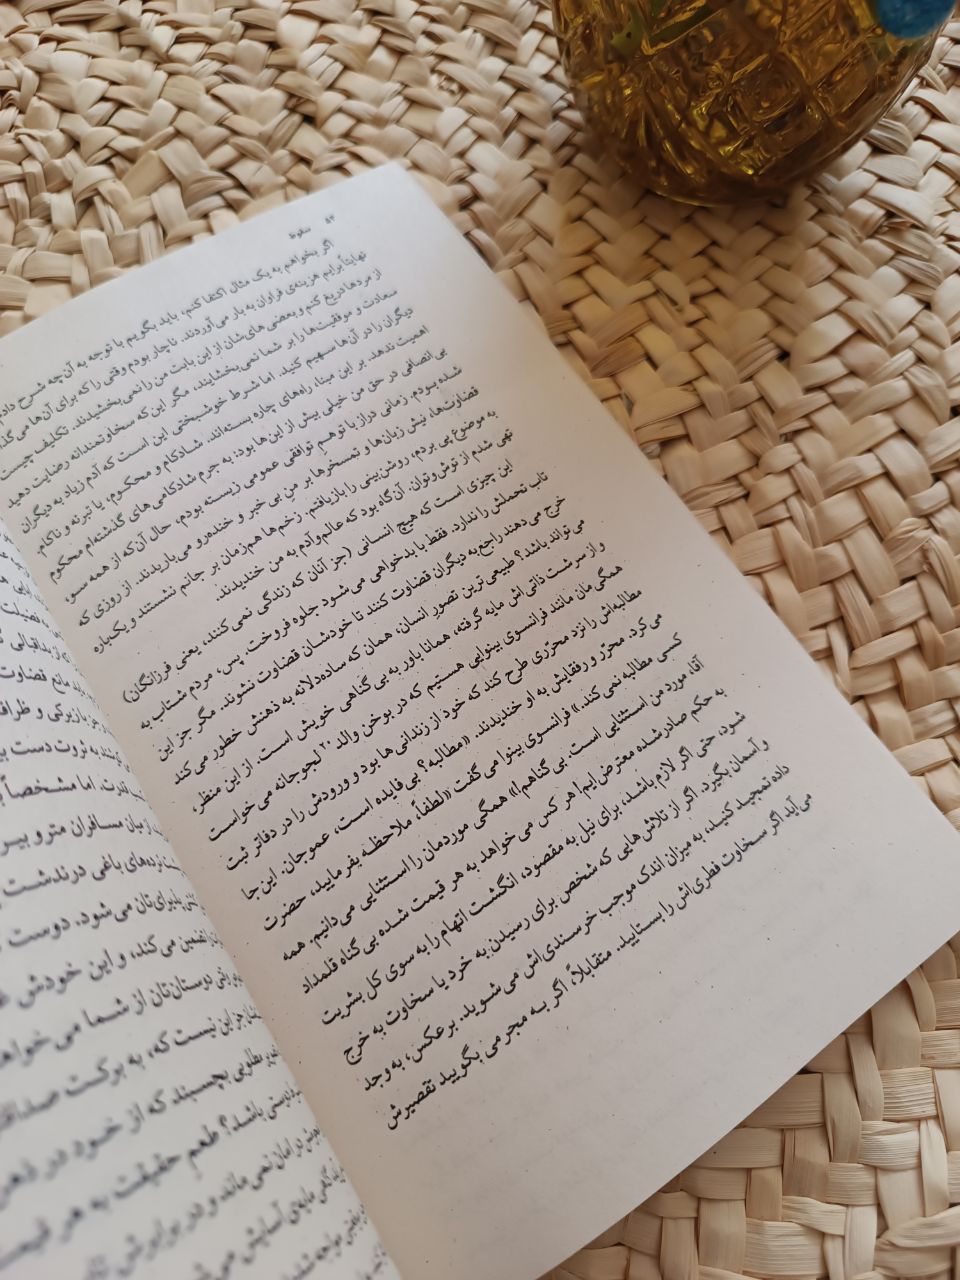 ۵۲ سقوط
اگر بخواهم به یک مثال اکتفا کنم، باید بگویم با توجه به آن چه شرح دادم
نهایتاً برایم هزینه‌ی فراوان به بار می‌آوردند. ناچار بودم وقتی را که برای آن‌ها می‌گذ
از مردها دریغ کنم و بعضی‌های‌شان از این بابت من را نمی‌بخشیدند. تکلیف چیست
سعادت و موفقیت‌ها را بر شما نمی‌بخشایند، مگر این که سخاوتمندانه رضایت دهید
دیگران را در آن‌ها سهیم کنید. اما شرط خوشبختی این است که آدم زیاد به دیگران
اهمیت ندهد. بر این مبنا، راه‌های چاره بسته‌اند. شادکام و محکوم، یا تبرئه و ناکام.
بی‌انصافی در حق من خیلی بیش از این‌ها بود: به جرم شادکامی‌های گذشته‌ام محکوم
شده بودم. زمانی دراز با توهم توافقی عمومی زیسته بودم، حال آن‌که از همه سو،
قضاوت‌ها، نیش زبان‌ها و تمسخرها بر من بی‌خبر و خنده‌رو می‌باریدند. از روزی که
به موضوع پی بردم، روشن‌بینی را بازیافتم. زخم‌ها هم‌زمان بر جانم نشستند و یک‌باره
تهی شدم از توش‌وتوان. آن‌گاه بود که عالم‌وآدم به من خندیدند.
این چیزی است که هیچ انسانی (جز آنان که زندگی نمی‌کنند، یعنی فرزانگان)
تاب تحملش را ندارد. فقط با بدخواهی می‌شود جلوه فروخت. پس، مردم شتاب به
خرج می‌دهند راجع به دیگران قضاوت کنند تا خودشان قضاوت نشوند. مگر جز این
می‌تواند باشد؟ طبیعی‌ترین تصور انسان، همان که ساده‌دلانه به ذهنش خطور می‌کند
و از سرشت ذاتی‌اش مایه گرفته، همانا باور به بی‌گناهی خویش است. از این منظر،
همگی‌مان مانند فرانسوی بینوایی هستیم که در بوخن والد۲۰ لجوجانه می‌خواست
مطالبه‌اش را نزد محرّری طرح کند که خود از زندانی‌ها بود و ورودش را در دفاتر ثبت
می‌کرد. محرّر و رفقایش به او خندیدند. «مطالبه؟ بی‌فایده است، عموجان. این‌جا
کسی مطالبه نمی‌کند.» فرانسوی بینوا می‌گفت «لطفاً، ملاحظه بفرمایید، حضرت
آقا، مورد من استثنایی است. بی‌گناهم!» همگی موردمان را استثنایی می‌دانیم. همه
به حکم صادرشده معترض‌ایم! هر کس می‌خواهد به هر قیمت شده بی‌گناه قلمداد
شود، حتی اگر لازم باشد، برای نیل به مقصود، انگشت اتهام را به سوی کل بشریت
و آسمان بگیرد. اگر از تلاش‌هایی که شخص برای رسیدن به خرد یا سخاوت به خرج
داده تمجید کنید، به میزان اندک موجب خرسندی‌اش می‌شوید. برعکس، به وجد
می‌آید اگر سخاوت فطری‌اش را بستایید. متقابلاً، اگر به مجرمی بگویید تقصیرش
مانع قضاوت
جز با زیرکی و ظرافت
به ثروت دست
قدرت. اما مشخصاً
از میان مسافران مترو بیر
باغی درندشت
پذیرای‌تان می‌شود. دوست
تضمین می‌کند، و این خودش
دوستان‌تان از شما می‌خواهد
جز این نیست که، به برکت صداقت
مطلوبی بچسبند که از خود در ذهن
باشد؟ طعم حقیقت به هر قیمت
در امان نمی‌ماند و در برابرش
مایه‌ی آسایش